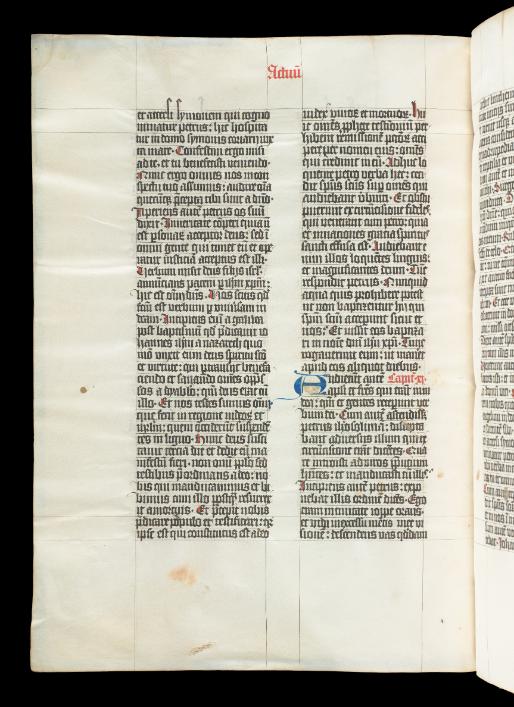 Actuū
et accersi symonem qui cogno
minatur petrus: hic hospita
tur in domo symonis coriarij iux
ta mare. Confestim ergo misi
ad te. et tu benefecisti veniendo.
Nunc ergo omnes nos in con
spectu tuo assumus: audire oīa
quecūqʒ p̄cepta tibi sunt a dn̄o.
Aperiens autē petrus os suū
dixit. In veritate comperi quia nō
est psonaꝝ acceptor deus: sed ī
omni gente qui timet eū et ope
ratur iusticiā acceptus est illi.
Verbum misit deus filijs isrl̄.
annūcians pacem p ih̄m xp̄m:
hic est oīm dn̄s. Vos scitis qd̄
factū est verbum p vniuersam iu
deam. Incipiens eni a galilea
post baptismū qd̄ p̄dicauit io
hannes ih̄m a nazareth: quo
mō vnxit eum deus spiritu scō
et virtute: qui ptransijt bn̄fa
ciendo et sanando omēs opp̄s
sos a dyabolo: qm̄ deus erat cū
illo. Et nos testes sumus oīm
que fecit in regione iudeoꝝ et
ih̄rlm̄: quem occiderūt suspendē
tes in ligno. Hunc deus susci
tauit tercia die et dedit eū ma
nifestū fieri. non omi pplo sed
testibus p̄ordinatis a deo: no
bis qui manducauimus et bi
bimus cum illo postqʒ resurrex
it a mortuis. Et p̄cepit nobis
p̄dicare pplo et testificari: qr
ipse est qui constitutus est a deo
iudex viuoꝝ et mortuoꝝ. Hu
ic omēs pphete testimoniū per
hibent remissionē pctōꝝ acci
pere per nomen eius: omēs
qui credunt in eū. Adhuc lo
quente petro verba hec: ceci
dit spūs scūs sup omēs qui
audiebant vbum. Et obstu
puerunt ex circūcisione fideles
qui venerant cum petro: quia
et in nationes gracia spiritus
sancti effusa est. Audiebant e
nim illos loquētes linguis:
et magnificantes deum. Tūc
respondit petrus. Nunquid
aquā quis prohibere potest
ut non baptizentur hij qui
sp̄m scm̄ acceperunt sicut et
nos: Et iussit eos baptiza
ri in noīe dn̄i ih̄u xp̄i. Tunc
rogauerunt eum: ut maneret
apud eos aliquot diebus.
Audierūt autē Capm̄ xi.
apl̄i et frēs qui erāt in iu
dea: qm̄ et gentes receperūt ver
bum dei. Cum autē ascendisset
petrus iherosolimā: discepta
bant aduersus illum qui ex
circūcisione erāt dicētes. Qua
re introisti ad viros ppuciūm
hn̄tes: et manducasti cū illis.
Incipiens autē petrus: expo
nebat illis ordinē dices. Ego
eram in ciuitate ioppe orans.
et vidi in excessu mentis mee vi
sionē: descendens vas qddam